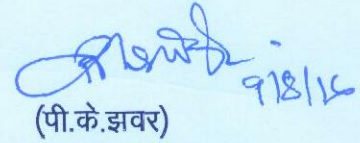 9/8/16
(पी.के.झवर)